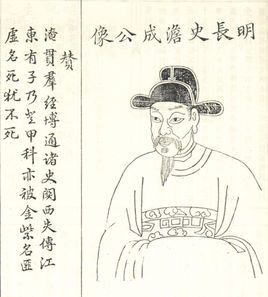 明長史澹成公像
贊
淹貫羣經博通諸史関西失傳江
東有子乃登甲科亦被金紫名匪
虛名死猶不死